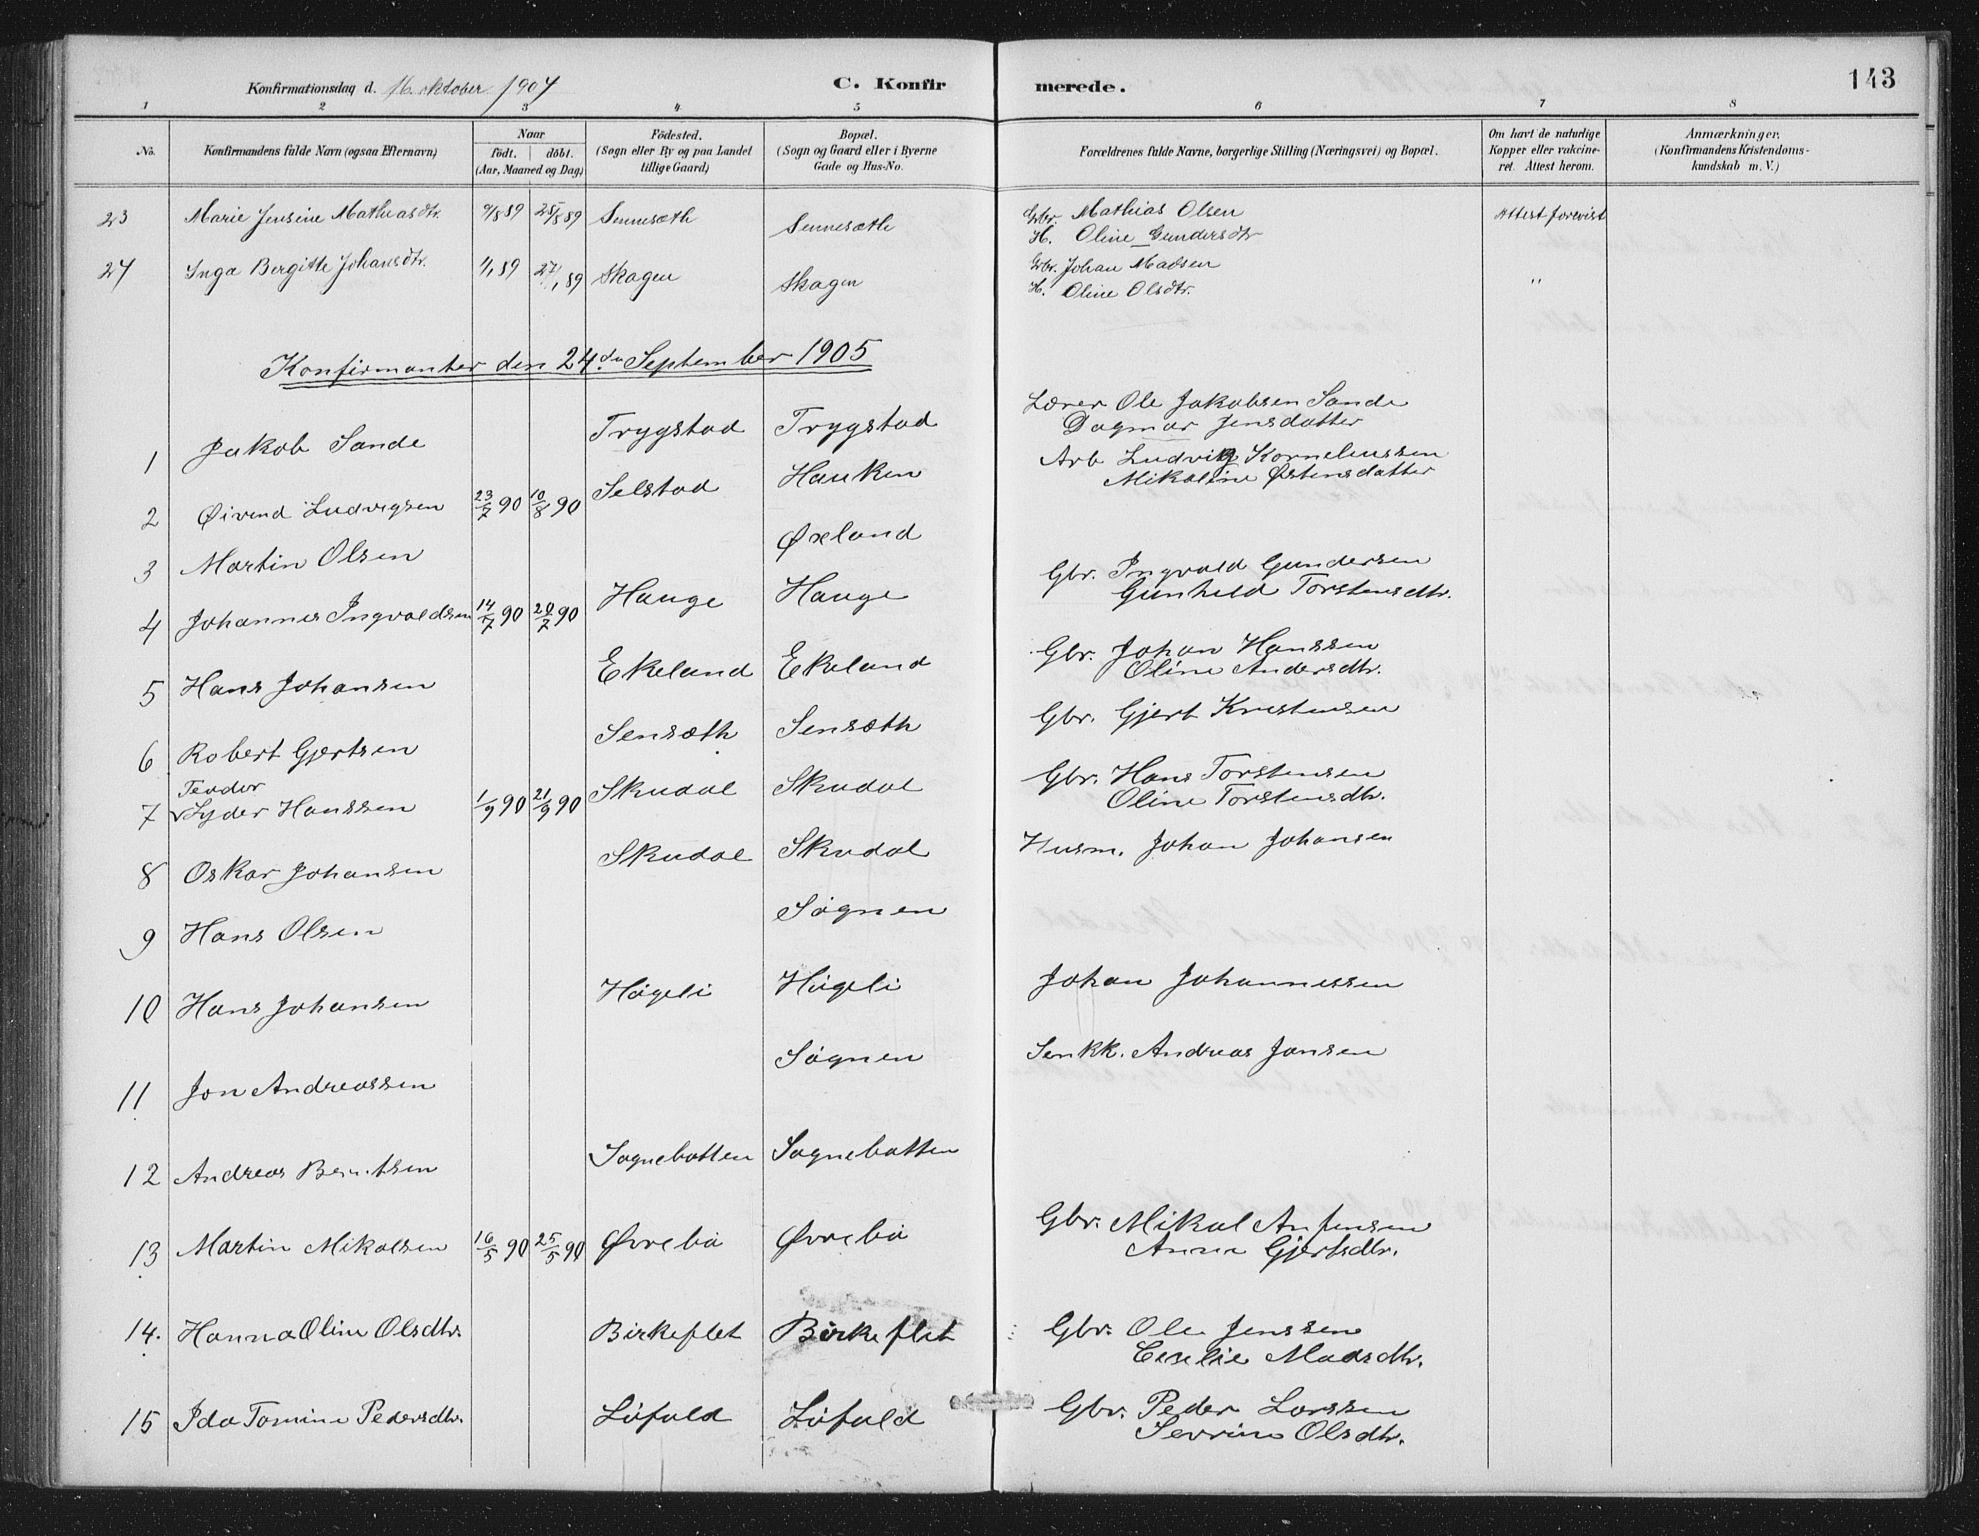 Konfirmationsdag d. 16. oktober 1904 C. Konfir merede. 143
1 2 3 4 5 6 7 8
No. Konfirmandens fulde Navn (ogsaa Efternavn) Naar födt. döbt. (Aar, Maaned og Dag) Födested. (Sogn eller By og paa Landet tillige Gaard) Bopæl. (Sogn og Gaard eller i Byerne Gade og Hus-No. Forældrenes fulde Navne, borgerlige Stilling (Næringsvei) og Bopæl. Om havt de naturlige Kopper eller vakcineret. Attest herom. Anmærkninger. (Konfirmandens Kristendomskundskab m. V.)
23 Marie Jensine Mathiasdtr. 9/8 89 25/8 89 Sennesæth Sennesæth Gbr. Mathias Olsen Attest forevist
H. Oline Gundersdtr
24 Inga Bergitte Johansdtr. 1/1 89 27/1 89 Skagen Skagen Gbr. Johan Madsen "
H. Oline Olsdtr.
Konfirmanter den 24de September 1905
1 Jakob Sande Trygstad Trygstad Lærer Ole Jakobsen Sande
Dagmar Jensdatter
2 Øivind Ludvigsen 23/7 90 10/8 90 Selstad Hauken Arb Ludvig Korneliussen
Mikaline Østensdatter
3 Martin Olsen Øxland
4 Johannes Ingvaldsen 14/7 90 20/7 90 Hauge Hauge Gbr. Ingvald Gundersen
Gunhild Torstensdtr.
5 Hans Johansen Ekeland Ekeland Gbr. Johan Hanssen
Oline Andersdtr.
6 Robert Gjertsen Sensæth Sensæth Gbr. Gjert Kristensen
Teodor
7 Syder Hanssen 1/9 90 21/9 90 Skudal Skudal Gbr. Hans Torstensen
Oline Torstensdtr.
8 Oskar Johansen Skudal Skudal Husm. Johan Johansen
9 Hans Olsen Søgnen
10 Hans Johansen Høgeli Høgeli Johan Johannessen
11 Jon Andreassen Søgnen Senkk. Andreas Jansen
12 Andreas Berntsen Sognebotten Sognebotten
13 Martin Mikalsen 16/5 90 25/5 90 Øvrebø Øvrebø Gbr. Mikal Anfensen
Anne Gjertsdtr.
14. Hanna Oline Olsdtr. Birkeflet Birkeflet Gbr. Ole Jenssen
Cecilie Madsdtr.
15 Ida Tomine Pedersdtr. Løfald Løfald Gbr. Peder Larssen
Sevrine Olsdtr.